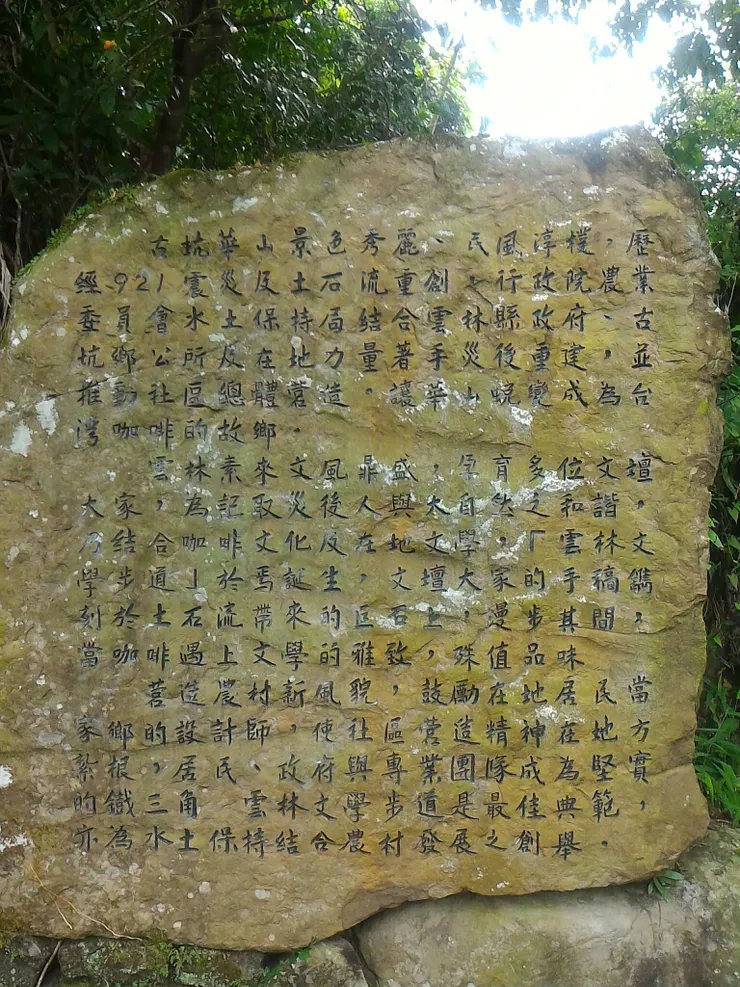 古坑華山景色秀麗、民風淳樸,歷
經921震災及土石流重創,行政院農業
委員會水土保持局結合雲林縣政府、古
坑鄉公所及在地力量著手災後重建,並
推動社區總體營造。讓華山蛻變成為台
灣咖啡的故鄉。
雲林素來文風鼎盛,孕育多位文壇
大家,為記取災後人與大自然之和諧,
乃結合咖啡文化及在地文學,「雲林文
學步道」於焉誕生,文壇大家的手稿鐫
刻於土石流帶來的巨石上,漫步其間,
當咖啡遇上文學的雅致,殊值品味。
營造農村新風貌,鼓勵在地居民當
家鄉的設計師,使社區營造精神在地方
紮根,居民、政府與專業團隊成為堅實
的鐵三角 雲林文學步道是最佳典範,
亦為水土保持結合農村發展之創舉。